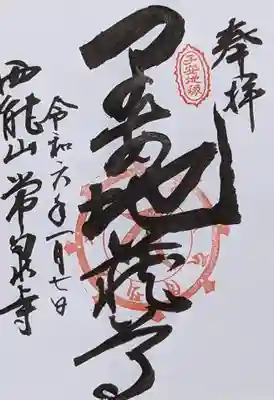 奉拝
子安地蔵
子安地蔵尊
令和六年一月七日
常泉寺